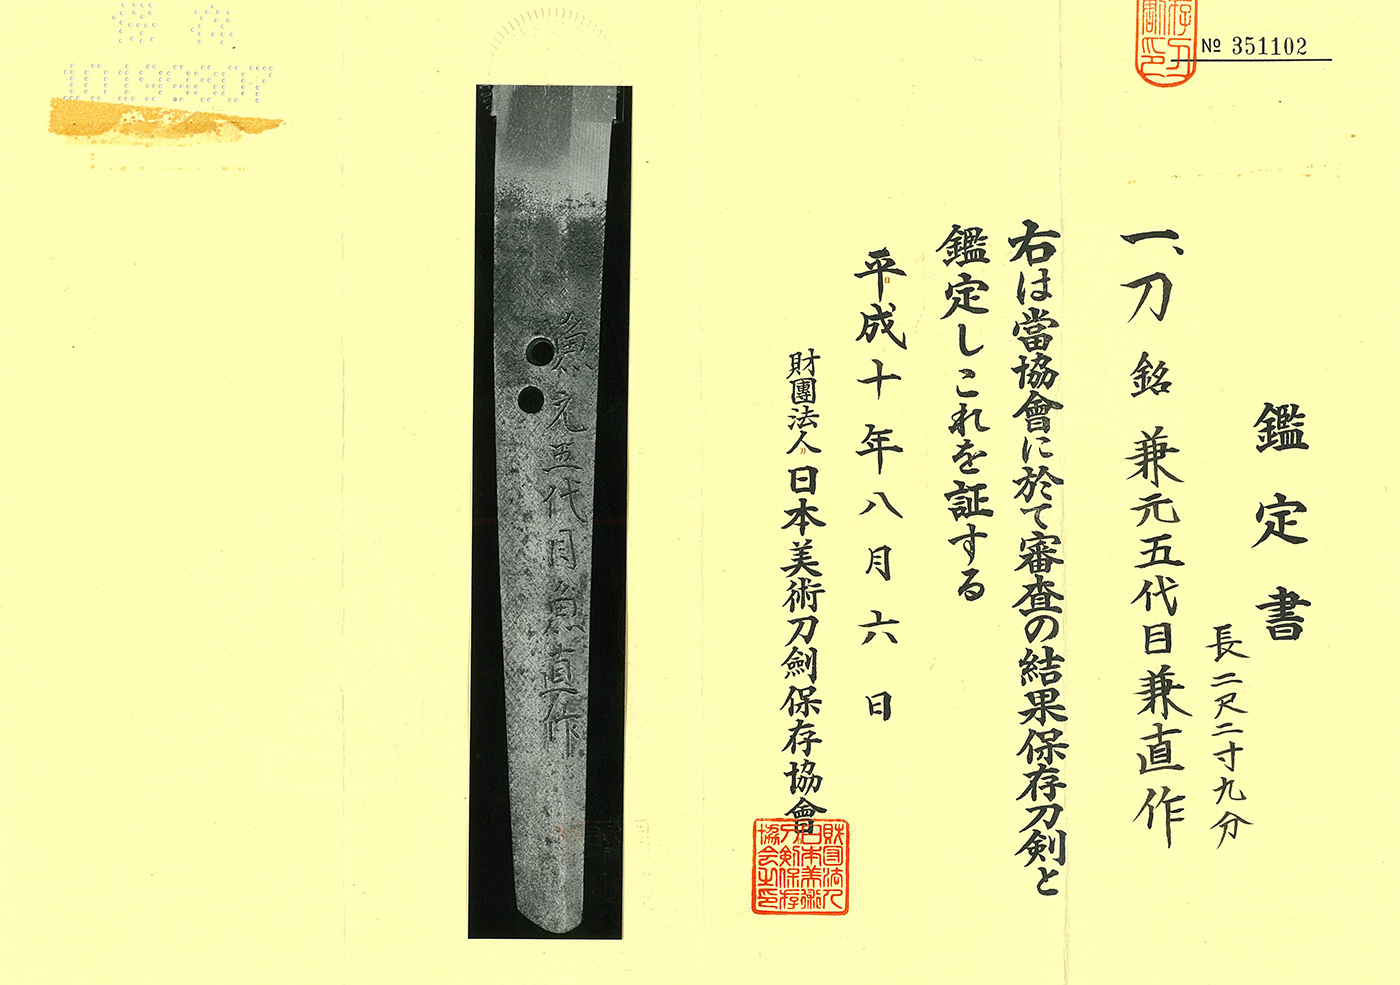 № 351102
鑑定書
長二尺二寸九分
一、刀 銘 兼元五代目兼直作
右は當協會に於て審査の結果保存刀剣と
鑑定しこれを証する
平成十年八月六日
財團法人 日本美術刀劍保存協會
財団法人
日本美術
刀剣保存
協会之印
兼元五代目兼直作